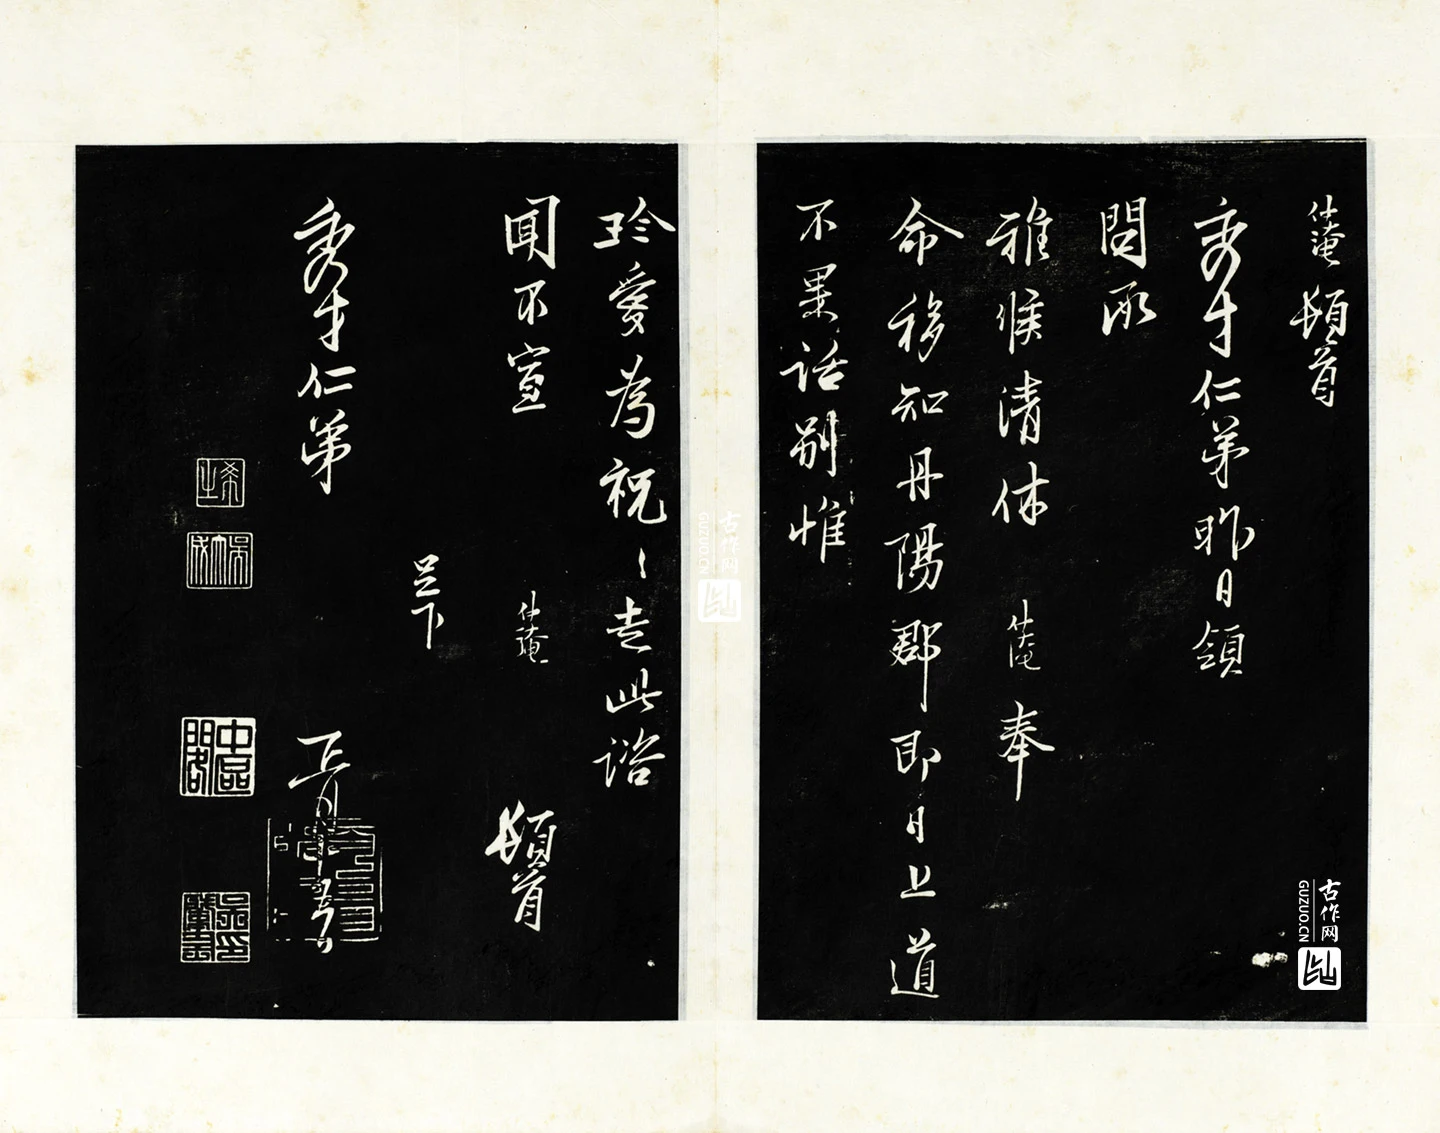 仲淹頓首
秀才仁弟昨日領
問承
雅候清休仲淹奉
命移知丹陽郡即日上道
不果話別惟
珍愛為祝〻走此諮
聞不宣仲淹頓首
足下
秀才仁弟
正月
古作网
GUZUO.CN
古作网
GUZUO.CN